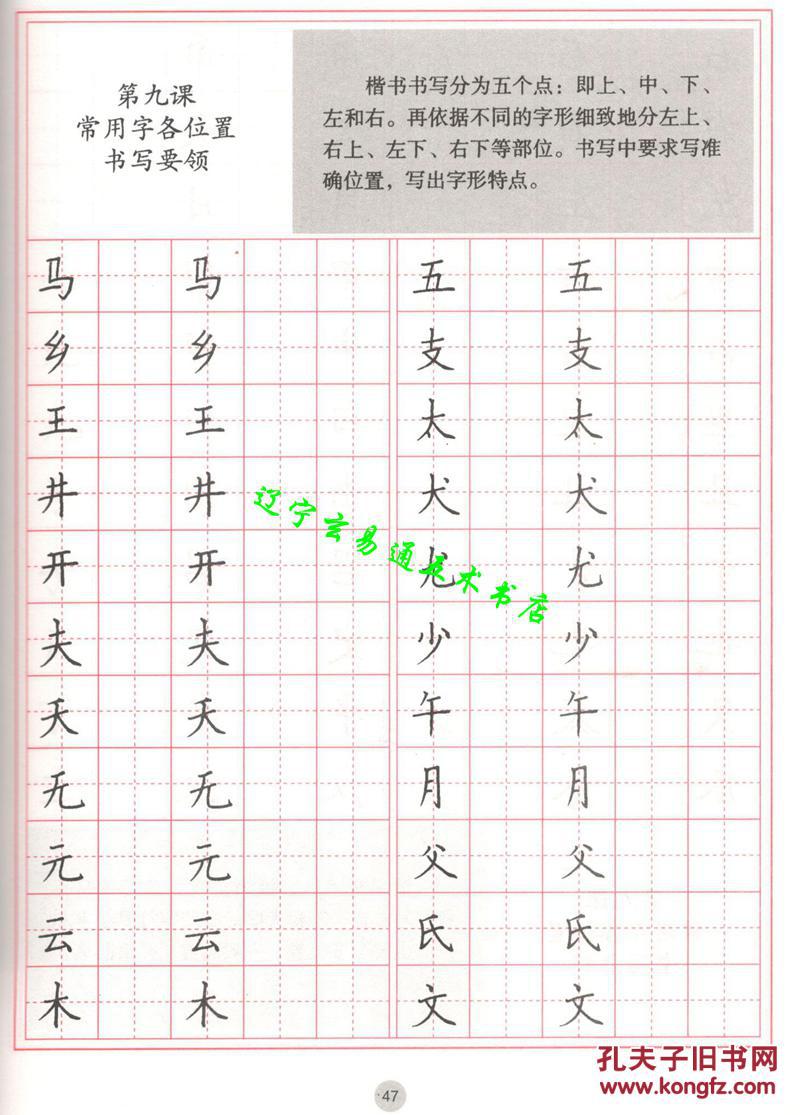 第九课
常用字各位置
书写要领
楷书书写分为五个点：即上、中、下、
左和右。再依据不同的字形细致地分左上、
右上、左下、右下等部位。书写中要求写准
确位置，写出字形特点。
马 马 五 五
乡 乡 支 支
王 王 太 太
井 井 犬 犬
开 开 尤 尤
夫 夫 少 少
夭 夭 午 午
无 无 月 月
元 元 父 父
云 云 氏 氏
木 木 文 文
辽宁玄易通美术书店
47
孔夫子旧书网
www.kongfz.com